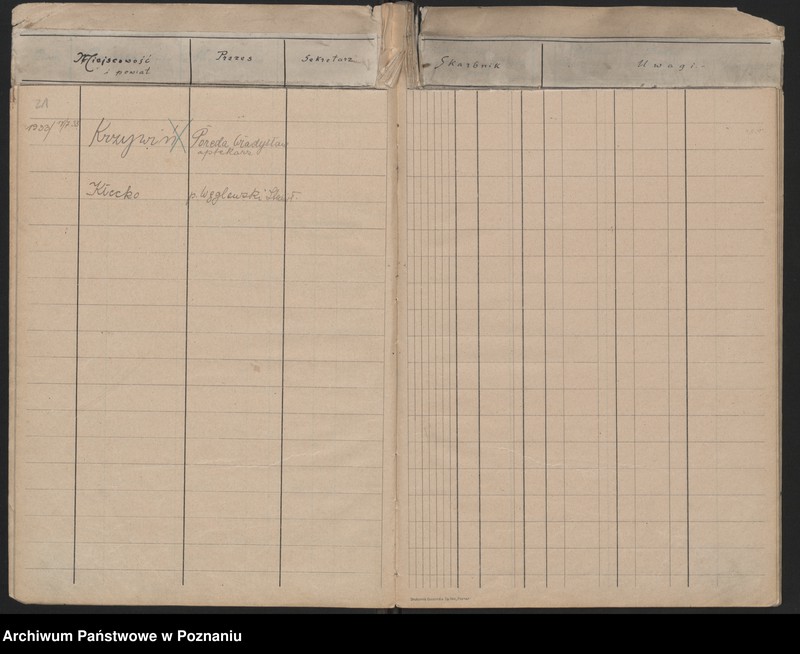 Miejscowość
i powiat
Prezes
Sekretarz
Skarbnik
Uwagi
21
1933/
Krzywiń
Pereda Władysław
aptekarz
Kłecko
p. Węglewski
Archiwum Państwowe w Poznaniu